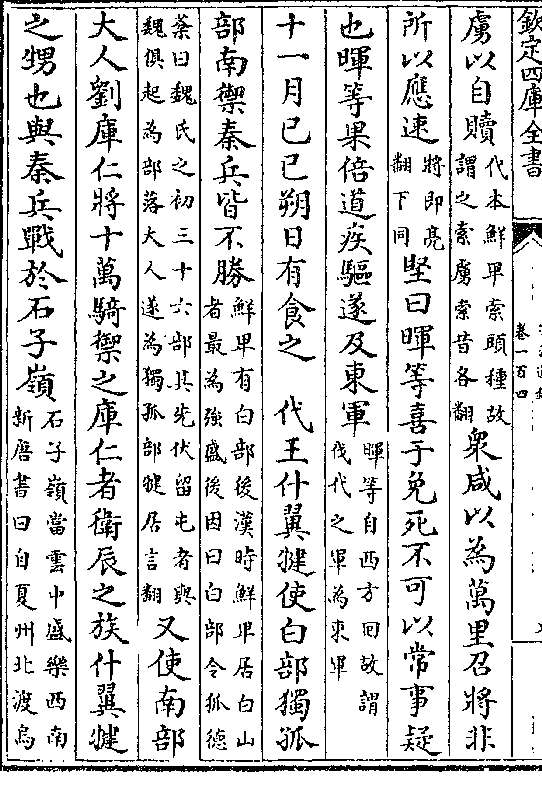 欽定四庫全書
卷一百四
虜以自贖代本鮮卑索頭種故謂之索虜索昔各翻衆咸以為萬里召將非
所以應速將即亮翻下同堅曰暉等喜于免死不可以常事疑
也暉等果倍道疾驅遂及東軍暉等自西方回故謂伐代之軍為東軍
十一月己巳朔日有食之　代王什翼犍使白部獨孤
部南禦秦兵皆不勝鮮卑有白部後漢時鮮卑居白山者最為強盛後因曰白部令狐德
棻曰魏氏之初三十六部其先伏留屯者與魏俱起為部落大人遂為獨孤部犍居言翻又使南部
大人劉庫仁將十萬騎禦之庫仁者衛辰之族什翼犍
之甥也與秦兵戰於石子嶺石子嶺當雲中盛樂西南新唐書曰自夏州北渡烏